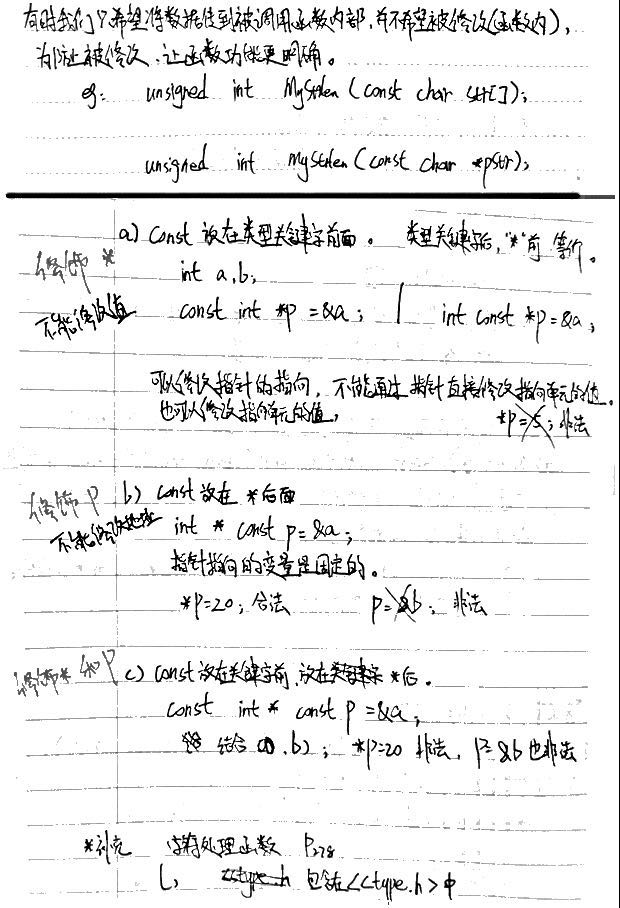 有时我们只希望将数据传到被调用函数内部,并不希望被修改(函数内),
为防止被修改,让函数功能更明确。
eg: unsigned int MyStrlen (const char str[]);
unsigned int MyStrlen (const char *pStr);
a) const 放在类型关键字前面。 类型关键字后,"*"前 等价。
修饰 *
int a,b;
不能修改值
const int *p = &a; | int const *p = &a;
可以修改指针的指向,不能通过指针直接修改指向单元的值。
也可以修改指向单元的值, *p=5; 非法
修饰 p b) const 放在 *后面
不能修改地址
int * const p = &a;
指针指向的变量是固定的。
*p=20; 合法 p=&b; 非法
修饰* 和 p c) const 放在关键字前,放在关键字 *后。
const int * const p = &a;
结合 a), b); *p=20 非法, p=&b 也非法
*补充 字符处理函数 P278
ctype.h 包含<ctype.h>中